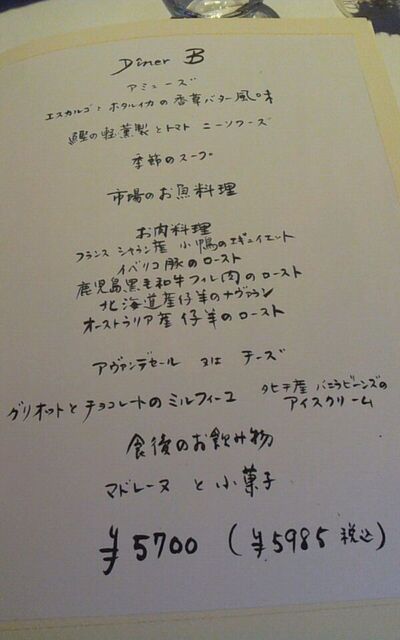 Dîner B
アミューズ
エスカルゴとホタルイカの香草バター風味
鰹の軽燻製とトマト ニーソワーズ
季節のスープ
市場のお魚料理
お肉料理
フランス シャラン産 小鴨のエギュイエット
イベリコ豚のロースト
鹿児島黒毛和牛フィレ肉のロースト
北海道産仔羊のナヴァラン
オーストラリア産 仔羊のロースト
アヴァンデセール 又は チーズ
グリオットとチョコレートのミルフィーユ タヒチ産 バニラビーンズの
アイスクリーム
食後のお飲み物
マドレーヌ と 小菓子
¥5700 (¥5985 税込)